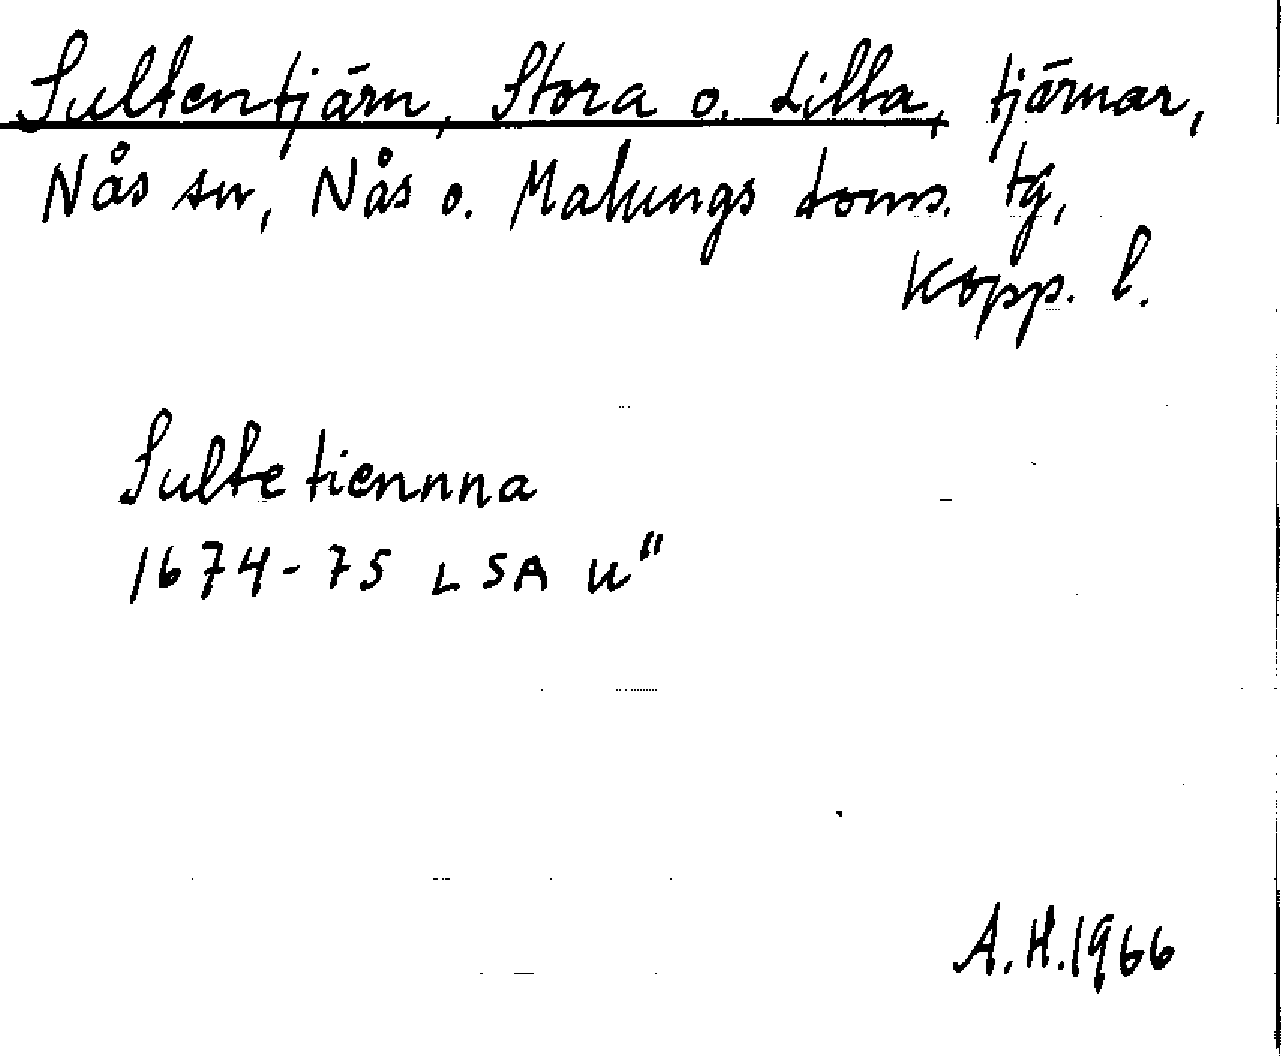 Sultentjärn, Stora o. Lilla, tjärnar,
Nås sn, Nås o. Malungs doms. tg,
Kopp. l.
Sultetiennna
1674-75 LSA U"
A.H.1966